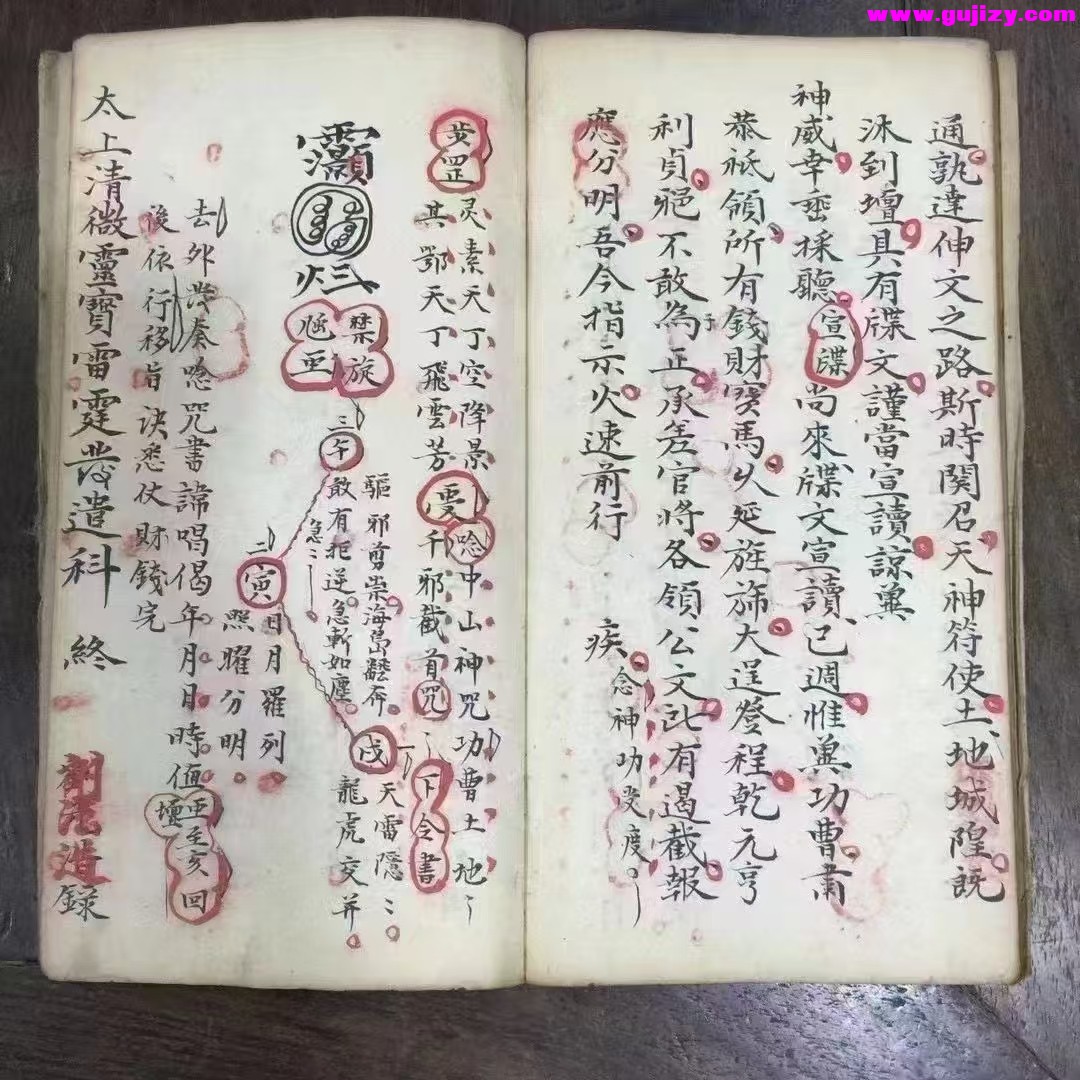 www.gujizy.com
通孰達伸文之路斯時関召天神符使土地城隍既
沐到壇具有牒文謹當宣讀諒兾
神威幸垂採聽宣牒尚來牒文宣讀已週惟兾功曹肅
恭祗領所有錢財寳馬火延旌旆大逞登程乾元亨
利貞邪不敢為正承差官將各領公文訟有遏截報
應分明吾今指示火速前行
疾念神功叐度
步罡
灵素天丁空降景唸中山神咒功曹土地
其鄂天丁飛雲芳千邪截首咒下令書
禁旋
三午
驅邪剪祟海島翻奔
敢有拒逆急斬如塵
急
二寅
日月羅列
照曜分明
一戌
天雷隱
龍虎交并
去外发奏唸咒書諱唱偈年月日時值亜至亥回壇
後依行移旨訣悉仗財錢完
太上清微靈寶雷霆发遣科 終
劉法浩錄